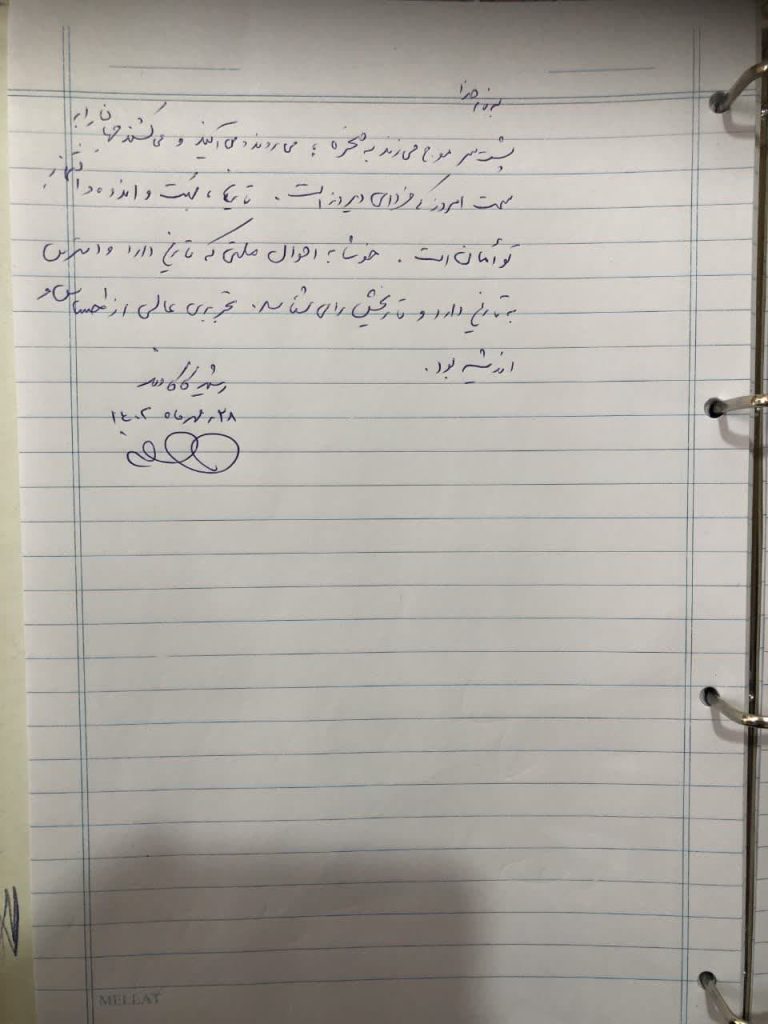 به نام خدا
پشت سر موج می‌زند به صخره؛ می‌روند و می‌آیند و می‌کشند جهان را به
سمت امروز که فردای دیروز است. تاریخ، نکبت و اندوه و
توأمان است. خوشا به احوال ملتی که تاریخ دارد و دسترس
به تاریخ دارد و تاریخش را می‌شناسد. تجربه‌ی عالی از احساس و
اندیشه بود.
رشید کاکاوند
۲۸ مهرماه ۱۴۰۲
MELLAT